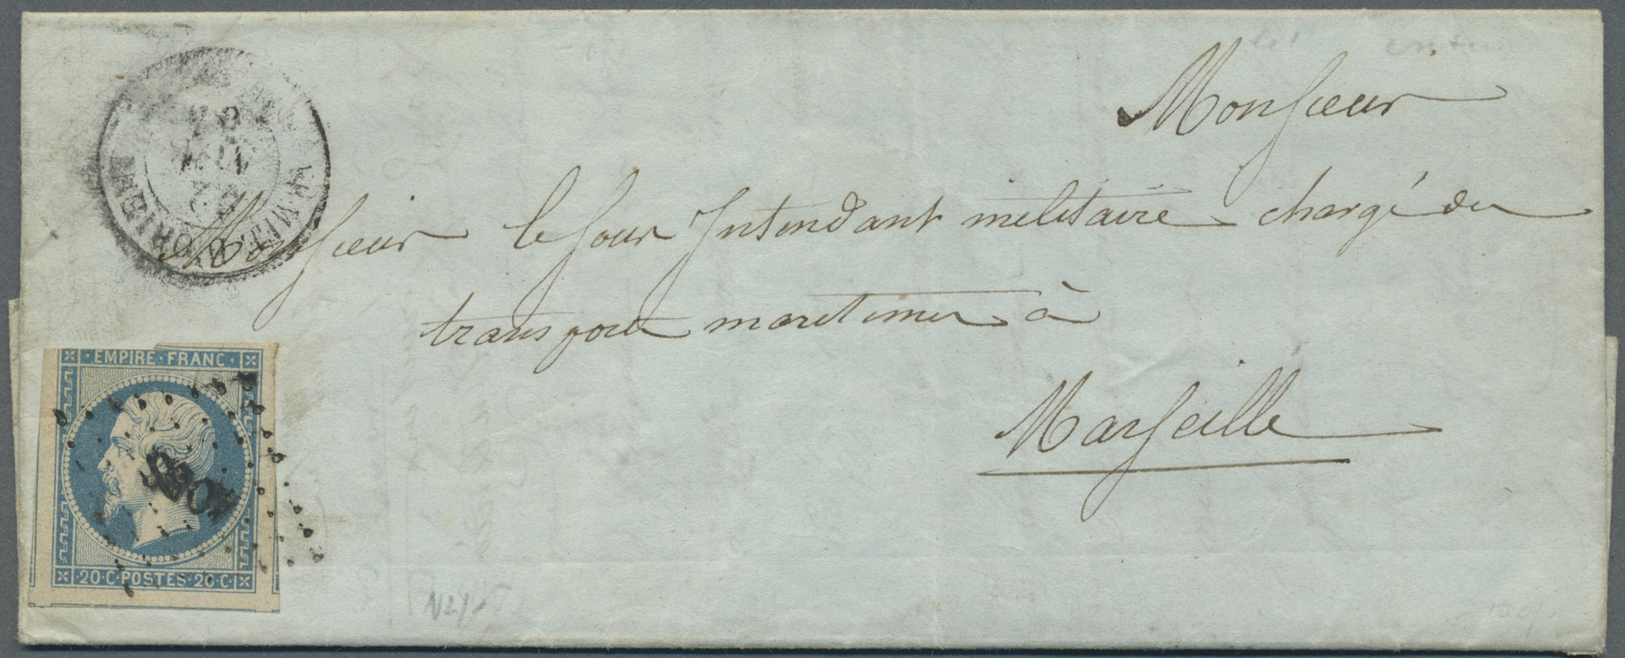 Monsieur
Monsieur le sous Intendant militaire chargé du
transport maritimes à
Marseille
EMPIRE · FRANC ·
20 · C · POSTES · 20 · C ·
ARMÉE D'ORIENT